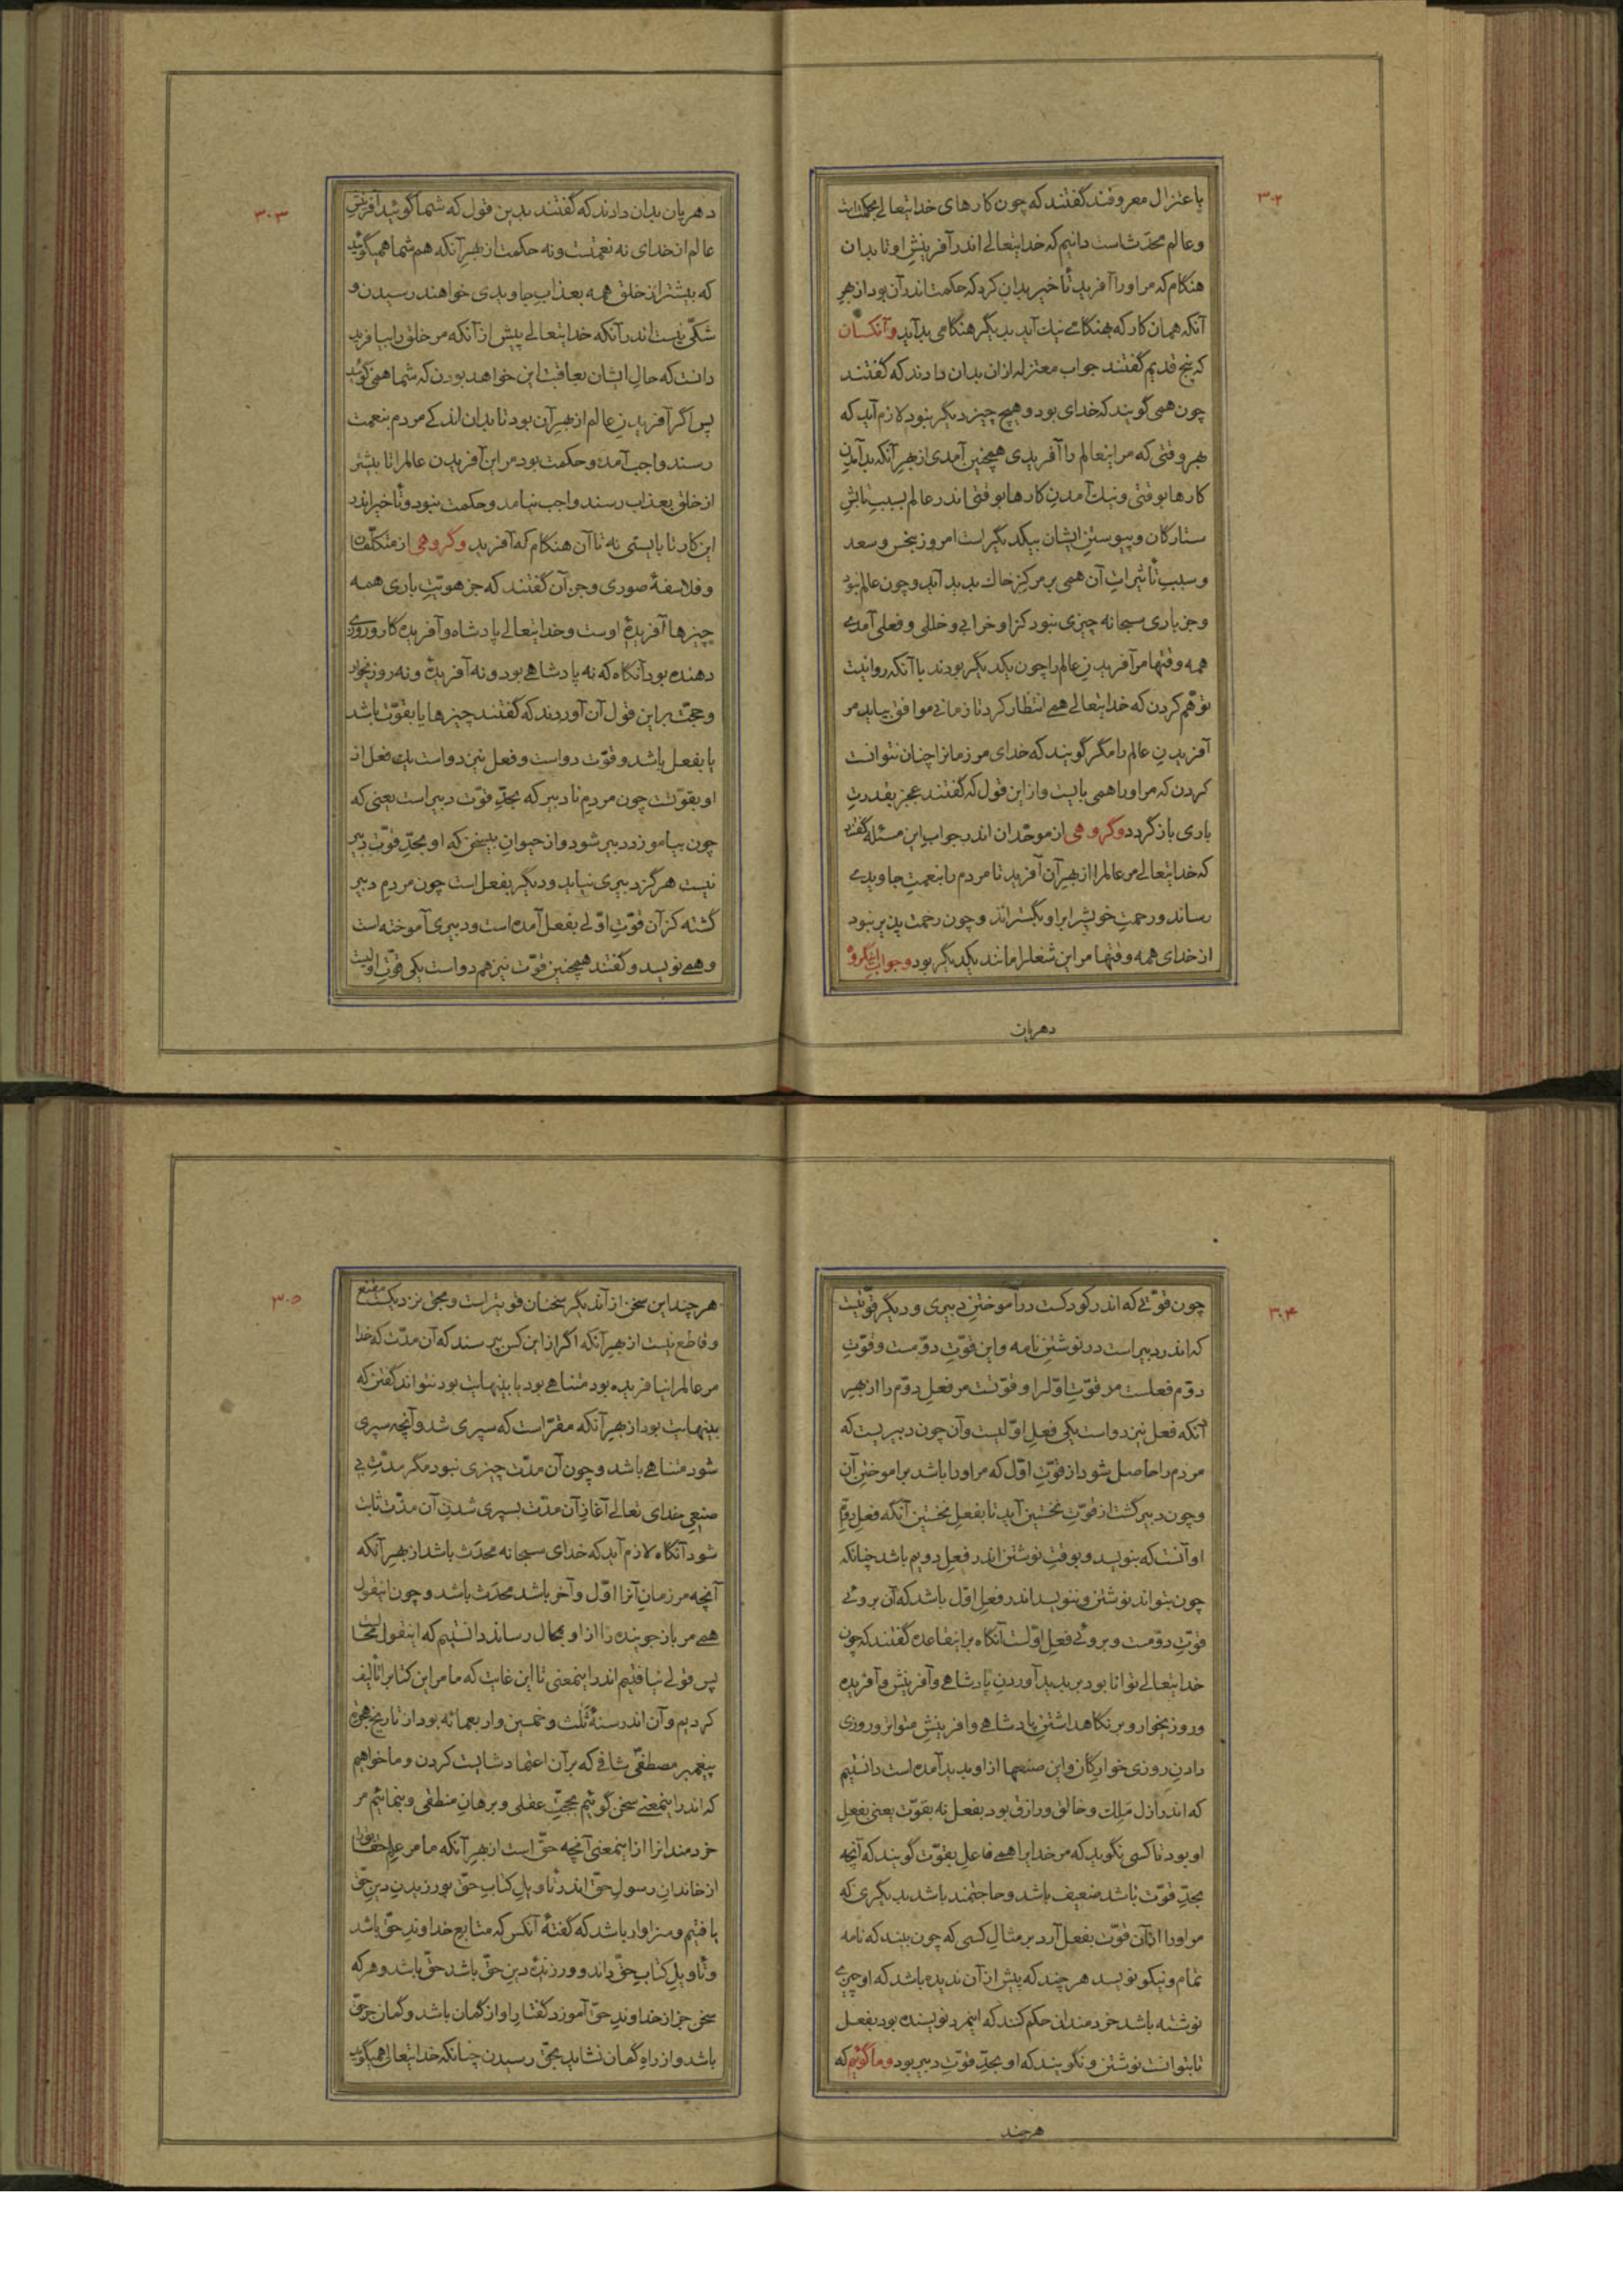 ۳۰۲
باعتزال معروفند گفتند که چون کارهای خدایتعالی بحکمتست
وعالم محدَث است دانیم که خدایتعالے اندر آفرینشِ او تا بدان
هنگام که مر اورا آفرید تأخیر بدان کرد که حکمت اندر آن بود از بهرِ
آنکه همان کار که بهنگامے نیك آید بدیگر هنگامی بد آید وآنکسان
که پنج قدیم گفتند جواب معتزله از آن بدان دادند که گفتند
چون همی گویند که خدای بود وهیچ چیز دیگر نبود لازم آید که
بهر وقتی که مر اینعالم را آفریدی همچنین آمدی از بهرِ آنکه بد آمدنِ
کارها بوقتی ونیك آمدنِ کارها بوقتی اندر عالم بسببِ تابشِ
ستارگان وپیوستنِ ایشان بیکدیگر است امروز بنحس وسعد
وسببِ تأثیراتِ آن همی بر مرکزِ خاك پدید آید وچون عالم نبود
وجز باری سبحانه چیزی نبود کزاو خرابی وخللی وفعلی آمدے
همه وقتها مر آفریدنِ عالم را چون یکدیگر بودند با آنکه روا نیست
توهّم کردن که خدایتعالے همے انتظار کرد تا زمانے موافق بیاید مر
آفریدنِ عالم را مگر گویند که خدای مر زمانرا چنان نتوانست
کردن که مر اورا همی بایست واز این قول که گفتند عجز بقدرتِ
باری باز گردد وگروهی از موحّدان اندر جوابِ این مسئله گفتند
که خدایتعالے مر عالمرا از بهرِ آن آفرید تا مردم را بنعمتِ جاویدے
رساند ورحمتِ خویشرا براو بگستراند وچون رحمت پذیر نبود
از خدای همه وقتها مر این شغلرا مانند یکدیگر بود وجواب اینگروه
دهریان
۳۰۳
دهریان بدان دادند که گفتند بدین قول که شما گوئید آفرینشِ
عالم از خدای نه نعمتست ونه حکمت از بهرِ آنکه هم شما همیگوئید
که بیشتر از خلق همه بعذابِ جاویدی خواهند رسیدن و
شکّی نیست اندر آنکه خدایتعالے پیش از آنکه مر خلق را بیافرید
دانست که حالِ ایشان بعاقبت این خواهد بودن که شما همی گوئید
پس اگر آفریدنِ عالم از بهرِ آن بود تا بدان اندکے مردم بنعمت
رسند واجب آمد وحکمت بود مر این آفریدن عالمرا تا بیشتر
از خلق بعذاب رسند واجب نیامد وحکمت نبود وتأخیر اندر
این کار تا بایستی نه تا آن هنگام که آفرید وگروهی از متکلّفان
وفلاسفهٔ صوری وجز آن گفتند که جز هویّتِ باری همه
چیزها آفریدهٔ اوست وخدایتعالے پادشاه وآفریدهکار وروزی
دهنده بود آنگاه که نه پادشاهے بود ونه آفریدهٔ ونه روزیخوار
وحجّت بر این قول آن آوردند که گفتند چیزها یا بقوّت باشد
یا بفعل باشد وقوّت دو است وفعل نیز دو است یك فعل از
او بقوّتست چون مردمِ نادبیر که بحدِّ قوّت دبیر است یعنی که
چون بیاموزد دبیر شود واز حیوانِ بیسخن که او بحدِّ قوّتِ دبیر
نیست هرگز دبیری نیاید ودیگر بفعل است چون مردمِ دبیر
گشته کز آن قوّتِ اوّلے بفعل آمده است ودبیری آموخته است
وهمے نویسد وگفتند همچنین قوّت نیز هم دو است یکی قوّتِ اوّلیست
۳۰۴
چون قوّتے که اندر کودکست در آموختنِ دبیری ودیگر قوّتیست
که اندر دبیر است در نوشتنِ نامه واین قوّتِ دوّمست وقوّتِ
دوّم فعلست مر قوّتِ اوّلرا وقوّتست مر فعلِ دوّم را از بهرِ
آنکه فعل نیز دو است یکی فعلِ اوّلیست وآن چون دبیریست که
مردم را حاصل شود از قوّتِ اوّل که مر اورا باشد بر آموختنِ آن
وچون دبیر گشت از قوّتِ نخستین آید تا بفعلِ نخستین آنگه فعلِ دوّمِ
او آنست که بنویسد وبوقتِ نوشتن اندر فعلِ دویم باشد چنانکه
چون بتواند نوشتن وننویسد اندر فعلِ اوّل باشد که آن بروئے
قوّتِ دوّمست وبروئے فعلِ اوّلست آنگاه بر اینقاعده گفتند که چون
خدایتعالے توانا بود بر پدید آوردنِ پادشاهے وآفرینش وآفریده
وروزیخوار وبر نگاهداشتنِ پادشاهے وآفرینشِ متواتر وروزی
دادنِ روزی خوارگان واین صنعها از او پدید آمده است دانستیم
که اندر أزل مَلِك وخالق ورازق بود بفعل نه بقوّت یعنی بفعلِ
او بود تا کسی نگوید که مر خدایرا همے فاعل بقوّت گویند که آنچه
بحدِّ قوّت باشد ضعیف باشد وحاجتمند باشد بدیگری که
مر اورا از آن قوّت بفعل آرد بر مثالِ کسی که چون بیند که نامه
تمام ونیکو نویسد هر چند که پیش از آن ندیده باشد که او چیزے
نوشته باشد خردمندان حکم کنند که اینمرد نویسنده بود بفعل
تا بتوانست نوشتن ونگویند که او بحدِّ قوّتِ دبیر بود وما گوئیم که
هرچند
۳۰۵
هر چند این سخن از آن دیگر سخنان قویتر است وبحقّ نزدیکست مقنع
وقاطع نیست از بهرِ آنکه اگر از این کس بپرسند که آن مدّت که خدا
مر عالمرا نیافریده بود متناهے بود یا بینهایت بود نتواند گفتن که
بینهایت بود از بهرِ آنکه مقرّ است که سپری شد وآنچه سپری
شود متناهے باشد وچون آن مدّت چیزی نبود مگر مدّتِ بے
صنعیِ خدای تعالے آغازِ آن مدّت بسپری شدنِ آن مدّت ثابت
شود آنگاه لازم آید که خدای سبحانه محدَث باشد از بهرِ آنکه
آنچه مر زمانِ آنرا اوّل وآخر باشد محدَث باشد وچون اینقول
همے مر باز جوینده را از او بمحال رساند دانستیم که اینقول محالست
پس قولے نیافتیم اندر اینمعنی تا این غایت که ما مر این کتابرا تألیف
کردیم وآن اندر سنهٔ ثَلث وخمسین واربعمائه بود از تاریخ هجرهٔ
پیغمبر مصطفیٰ شافے که بر آن اعتماد شایست کردن وما خواهیم
که اندر اینمعنے سخن گوئیم بحجّتِ عقلی وبرهانِ منطقی وبنمائیم مر
خردمندانرا از اینمعنی آنچه حقّ است از بهرِ آنکه ما مر علمِ حقایق را
از خاندانِ رسولِ حقّ اندر تأویلِ کتابِ حقّ بورزیدنِ دینِ حقّ
یافتیم وسزاوار باشد که گفتهٔ آنکس که متابع خداوندِ حقّ باشد
وتأویلِ کتابِ حقّ داند وورزندهٔ دینِ حقّ باشد حقّ باشد وهر که
سخن جز از خداوندِ حقّ آموزد گفتارِ او از گمان باشد وگمان جز حقّ
باشد واز راهِ گمان نشاید بحقّ رسیدن چنانکه خدایتعالی همیگوید